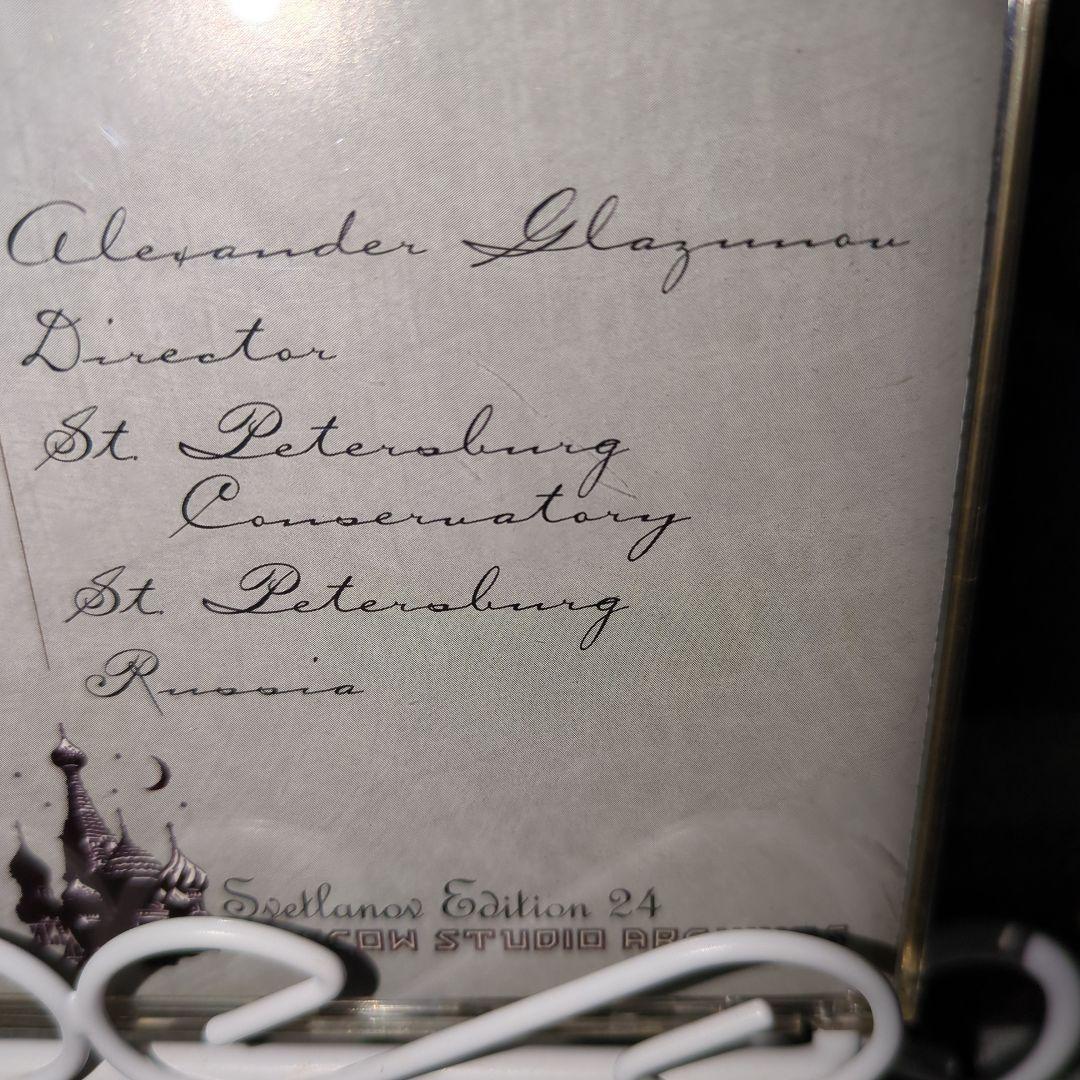 Alexander Glazunov
Director
St. Petersburg
Conservatory
St. Petersburg
Russia
Svetlanov Edition 24
STUDIO